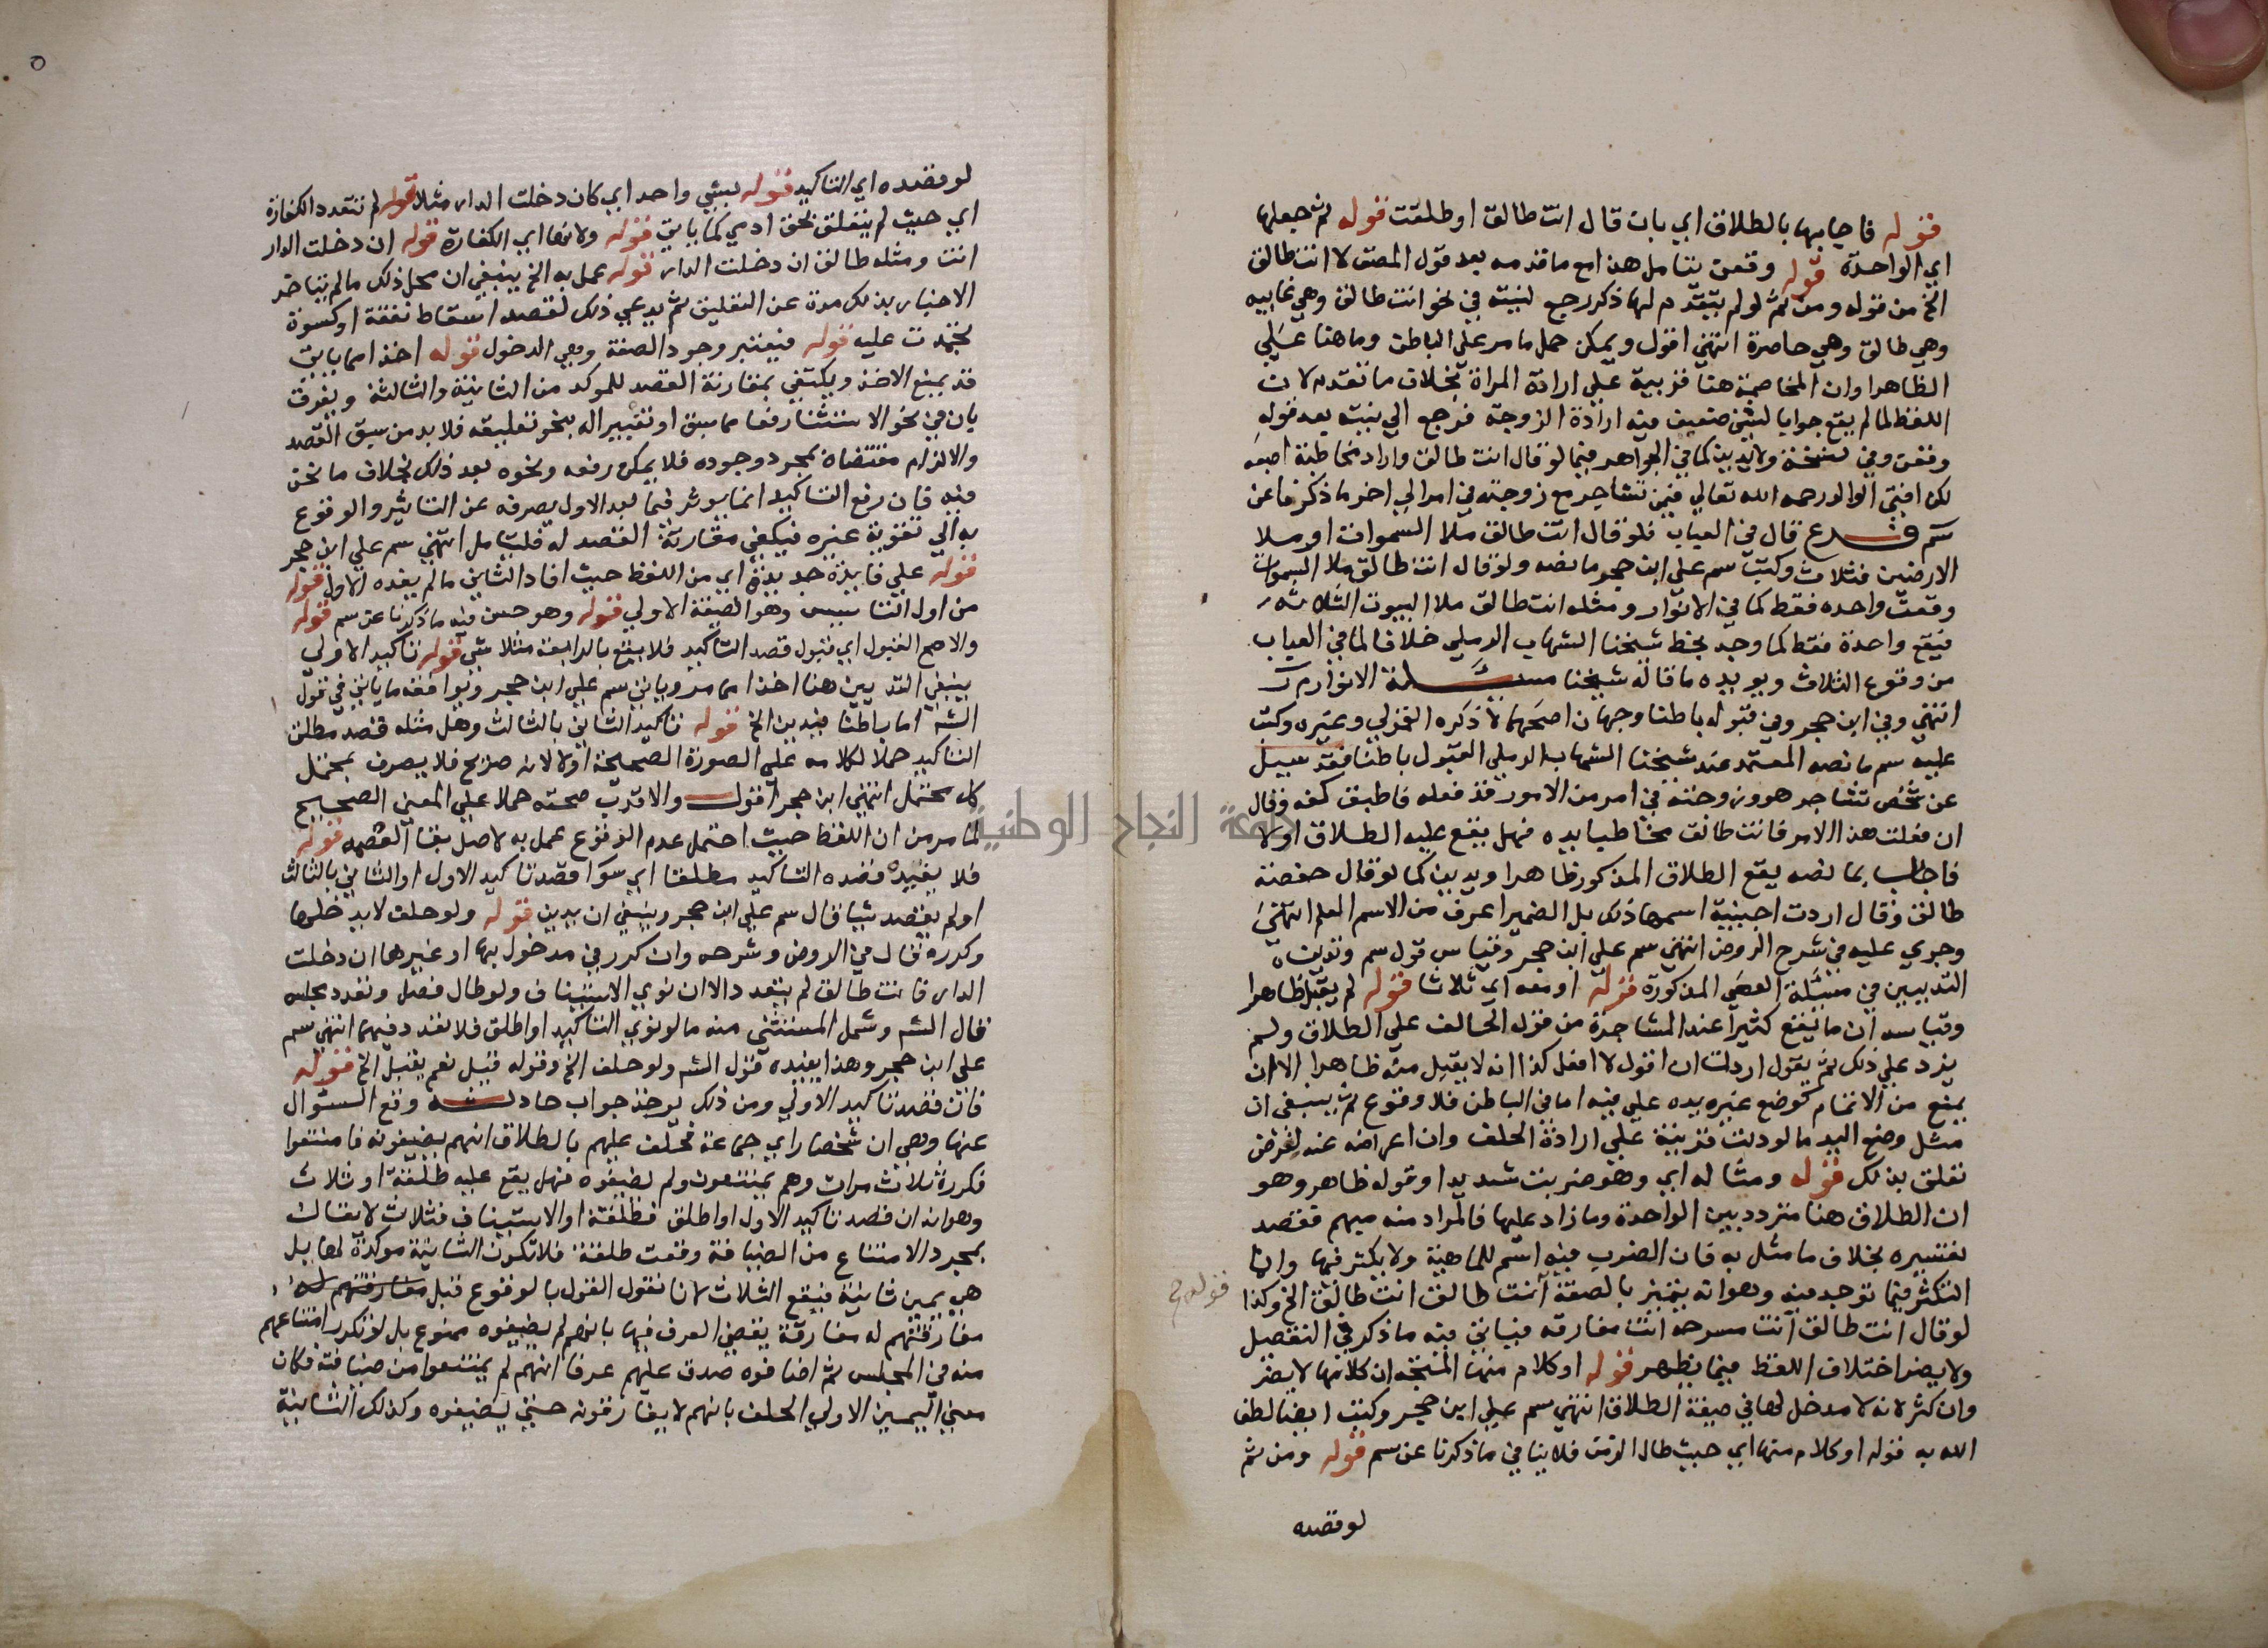 قوله فاجابها بالطلاق اي بان قال انت طالق او طلقت قوله ثم جعلها
اي الواحدة قوله وقعن يتامل هذا مع ما قدمه بعد قول المصنف لا انت طالق
الخ من قوله ومن ثم لو لم يتقدم لها ذكر رجع لنيته في نحو انت طالق وهي غايبه
وهي طالق وهي حاضرة انتهي اقول ويمكن حمل ما مر علي الباطن وما هنا علي
الظاهر او ان المخاصمة هنا قرينة علي ارادة المراة بخلاف ما تقدم لان
اللفظ لما لم يقع جوابا لشي ضعيف فيه ارادة الزوجة فرجع الي نيته بعد قوله
وقعن وفي نسخة ولا يدين كما في الجواهر فيما لو قال انت طالق واراد مخاطبة اصبعه
لكن افتي الوالد رحمه الله تعالي فيمن تشاجر مع زوجته في امر الي اخر ما ذكرنا عن
سم فرع قال في العباب فلو قال انت طالق ملا السموات او ملا
الارضين فثلاث وكتب سم علي ابن حجر ما نصه ولو قال انت طالق ملا السموات
وقعت واحده فقط كما في الانوار ومثله انت طالق ملا البيوت الثلاثه
فيقع واحدة فقط كما وجد بخط شيخنا الشهاب الرملي خلافا لما في العباب
من وقوع الثلاث ويويده ما قاله شيخنا مسئلة الانوار م ر
انتهي وفي ابن حجر وفي قبوله باطنا وجهان اصحهما لا ذكره القمولي وغيره وكتب
عليه سم ما نصه المعتمد عند شيخنا الشهاب الرملي القبول باطنا فقد سيل
عن شخص تشاجر هو وزوجته في امر من الامور قد فعله فاطبق كفه وقال
ان فعلت هذا الامر فانت طالق مخاطبا يده فهل يقع عليه الطلاق اولا
فاجاب بما نصه يقع الطلاق المذكور ظاهرا ويدين كما لو قال حفصة
طالق وقال اردت اجنبية اسمها ذلك بل الضمير اعرف من الاسم العلم انتهي
وجري عليه في شرح الروض انتهي سم علي ابن حجر وقياس قول سم
التدبيين في مسئلة العصي المذكورة قوله او معه اي ثلاثا قوله لم يقبل ظاهرا
وقياسه ان ما يقع كثيرا عند المشاجرة من قوله الحالف علي الطلاق ولم
يزد علي ذلك ثم يقول اردت ان اقول لا افعل كذا انه لا يقبل منه ظاهرا الا ان
يمنع من الاتمام كوضع غيره يده علي فيه اما في الباطن فلا وقوع ثم ينبغي ان
مثل وضع اليد ما لو دلت قرينة علي ارادة الحلف وان اعراضه عنه لغرض
تعلق بذلك قوله ومثاله اي وهو ضربت شديدا وقوله ظاهر وهو
ان الطلاق هنا متردد بين الواحدة وما زاد عليها فالمراد منه مبهم فقصد
تفسيره بخلاف ما مثل به فان الضرب فيه اسم للماهية ولا يكثر فيها وانما
التكثر فيما توجد فيه وهو انه يتميز بالصفة انت طالق انت طالق الخ وكذا
لو قال انت طالق انت مسرحه انت مفارقه فياتي فيه ما ذكر في التفصيل
ولا يضر اختلاف اللفظ فيما يظهر قوله او كلام منها المتجه ان كلامها لا يضر
وان كثر لانه لا مدخل لها في صيغة الطلاق انتهي سم علي ابن حجر وكتب ايضا لطف
الله به قوله او كلام منها اي حيث طال الزمن فلا ينافي ما ذكرنا عن سم قوله ومن ثم
لو قصده
جامعة النجاح الوطنية
٥
لو قصده اي التاكيد قوله لبشي واحد اي كان دخلت الدار مثلا قوله لم تتعدد الكفارة
اي حيث لم يتعلق بحق ادمي كما ياتي قوله ولانها اي الكفارة قوله ان دخلت الدار
انت ومثله طالق ان دخلت الدار قوله عمل به الخ ينبغي ان محل ذلك ما لم يتاخر
الاخبار بذلك مدة عن التعليق ثم يدعي ذلك لقصد اسقاط نفقة او كسوة
تجمدت عليه قوله فيعتبر وجود الصفة وهي الدخول قوله اخذا مما ياتي
قد يمنع الاخذ ويكتفي بمقارنة القصد للموكد من الثانية والثالثة ويفرق
بان في نحو الاستثنا رفعا مما سبق او تغييرا له بنحو تعليقه فلا بد من سبق القصد
والالزام مقتضاه بمجرد وجوده فلا يمكن رفعه ونحوه بعد ذلك بخلاف ما نحن
فيه فان رفع التاكيد انما يوثر فيما بعد الاول بصرفه عن التاثير والوقوع
به الي تقوية غيره فيكفي مقارنة القصد له فليتامل انتهي سم علي ابن حجر
قوله علي فايدة جديدة اي من اللفظ حيث افاد الثاني ما لم يفده الاول قوله
من اول التاسيس وهو الصيغة الاولي قوله وهو حسن فيه ما ذكرنا عن سم قوله
والاصح القبول اي قبول قصد التاكيد فلا يقع بالرابعة مثلا شي قوله تاكيد الاولي
ينبغي التديين هنا اخذا مما مر وياتي سم علي ابن حجر ويوافقه ما ياتي في قول
الشه اما باطنا فيدين الخ قوله تاكيد الثاني بالثالث وهل مثله قصد مطلق
التاكيد حملا لكلامه علي الصورة الصحيحة اولا لانه صريح فلا يصرف بمحتمل
كل محتمل انتهي ابن حجر اقول والاقرب صحته حملا علي المعني الصحيح
لما مر من ان اللفظ حيث احتمل عدم الوقوع عمل به لاصل بقا العصمه قوله
فلا يفيده قصده التاكيد مطلقا اي سوا قصد تاكيد الاول او الثاني بالثالث
او لم يقصد شيا قال سم علي ابن حجر وينبغي ان يدين قوله ولو حلف لا يدخلها
وكرره قال في الروض وشرحه وان كرر في مدخول بها او غيرها ان دخلت
الدار فانت طالق لم يتعدد الا ان نوي الاستيناف ولو طال فصل وتعدد مجلس
قال الشه وشمل المستثني منه ما لو نوي التاكيد او اطلق فلا تعدد فيهما انتهي سم
علي ابن حجر وهذا يفيده قول الشه ولو حلف الخ وقوله قبل نعم يقبل الخ قوله
فان قصد تاكيد الاولي ومن ذلك يوخذ جواب حادثة وقع السئوال
عنها وهي ان شخصا راي جماعة فحلف عليهم بالطلاق انهم يضيفونه فامتنعوا
فكرره ثلاث مرات وهم يمتنعون ولم يضيفوه فهل يقع عليه طلقة او ثلاث
وهو انه ان قصد تاكيد الاول او اطلق فطلقة او الاستيناف فثلاث لا يقال
بمجرد الامتناع من الضيافة وقعت طلقة فلا تكون الثانية موكدة لها بل
هي يمين ثانية فيقع الثلاث لانا نقول القول بالوقوع قبل مفارقتهم له
مفارقتهم له مفارقة يقضي العرف فيها بانهم لم يضيفوه ممنوع بل لو تكرر امتناعهم
منه في المجلس ثم اضافوه صدق عليهم عرفا انهم لم يمتنعوا من ضيافته فكان
معني اليمين الاولي الحلف بانهم لا يفارقونه حتي يضيفوه وكذلك الثانية